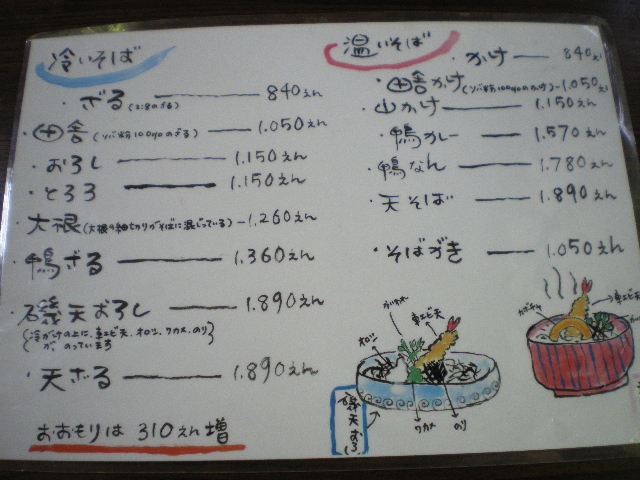 冷いそば
・ざる(2:8のざる) 840えん
・田舎(ソバ粉100%のざる) 1.050えん
・おろし 1.150えん
・とろろ 1.150えん
・大根(大根の細切りがそばに混じっている) 1.260えん
・鴨ざる 1.360えん
・磯天おろし 1.890えん
(冷かけの上に、車エビ天、オロシ、ワカメ、のり
が、のっています)
・天ざる 1.890えん
おおもりは 310えん増
温いそば
・かけ 840えん
・田舎かけ(ソバ粉100%のかけ) 1.050えん
・山かけ 1.150えん
・鴨カレー 1.570えん
・鴨なん 1.780えん
・天そば 1.890えん
・そばがき 1.050えん
車エビ天
カボチャ
車エビ天
オロシ
磯天おろし
ワカメ
のり